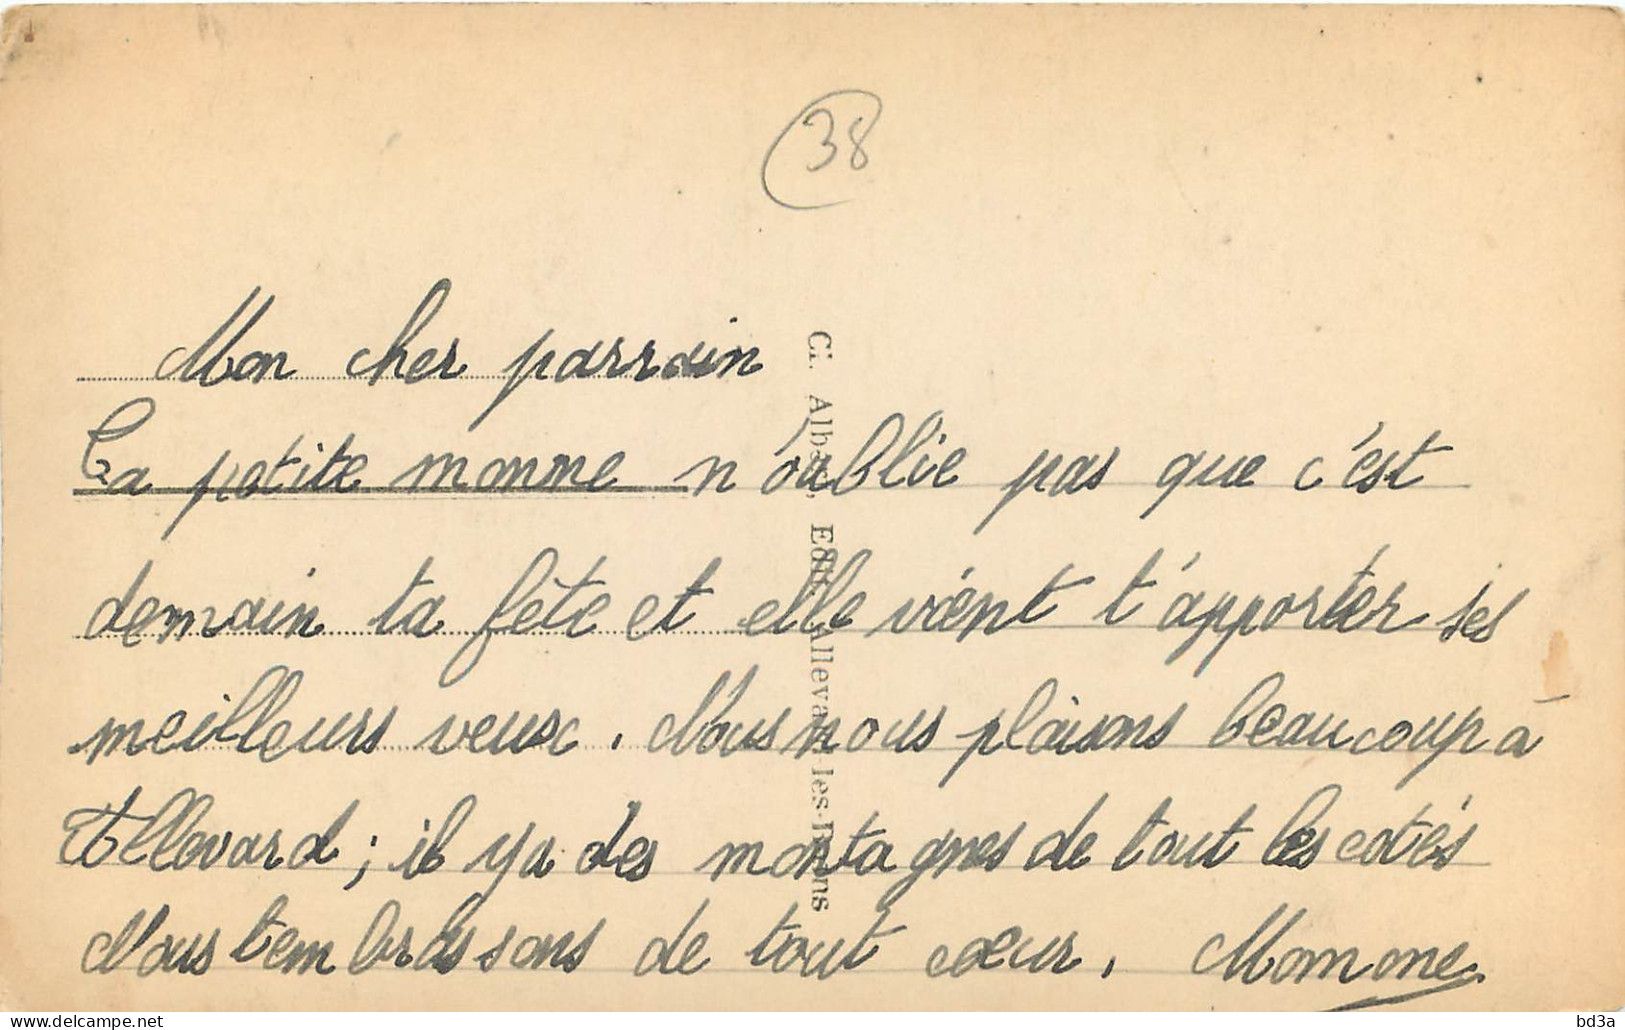 38
Mon cher parrain
Ta petite momone n'oublie pas que c'est
demain ta fête et elle vient t'apporter ses
meilleurs veux. Nous nous plaisons beaucoup à
Allevard ; il y a des montagnes de tout les cotés
Nous t'embrassons de tout cœur. Momone
C. Edit. Allevard-les-Bains
bd3a